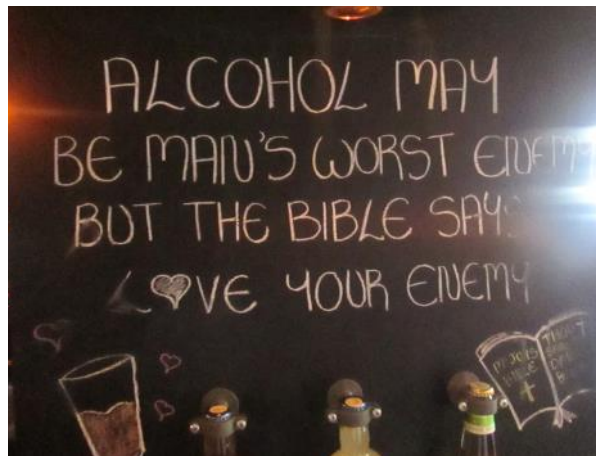 ALCOHOL MAY
BE MAN'S WORST ENEMY
BUT THE BIBLE SAYS
LOVE YOUR ENEMY
BIBLE